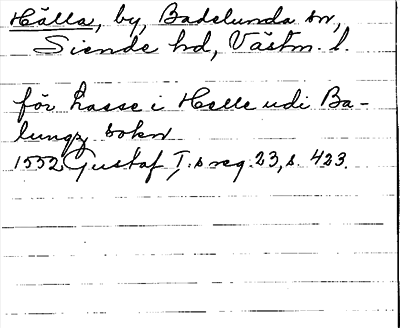 Hälla, by, Badelunda sn,
Siende hd, Västm. l.
för Lasse i Helle udi Ba-
lungz sokn
1552 Gustaf I.s reg. 23, s. 423.